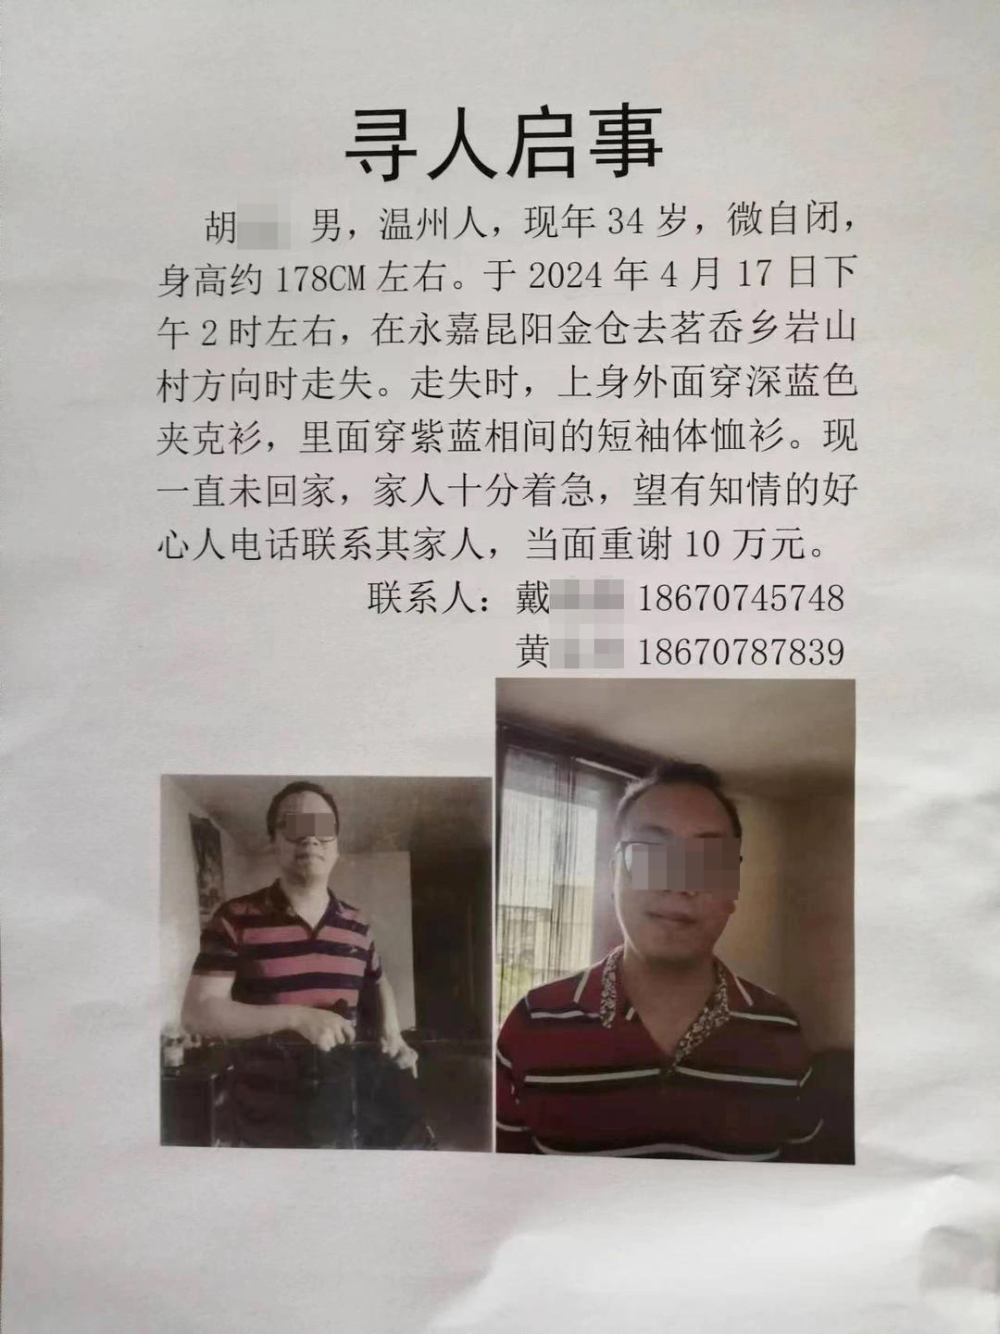 寻人启事
胡 男，温州人，现年34岁，微自闭，
身高约178CM左右。于2024年4月17日下
午2时左右，在永嘉昆阳金仓去茗岙乡岩山
村方向时走失。走失时，上身外面穿深蓝色
夹克衫，里面穿紫蓝相间的短袖体恤衫。现
一直未回家，家人十分着急，望有知情的好
心人电话联系其家人，当面重谢10万元。
联系人：戴 18670745748
黄 18670787839